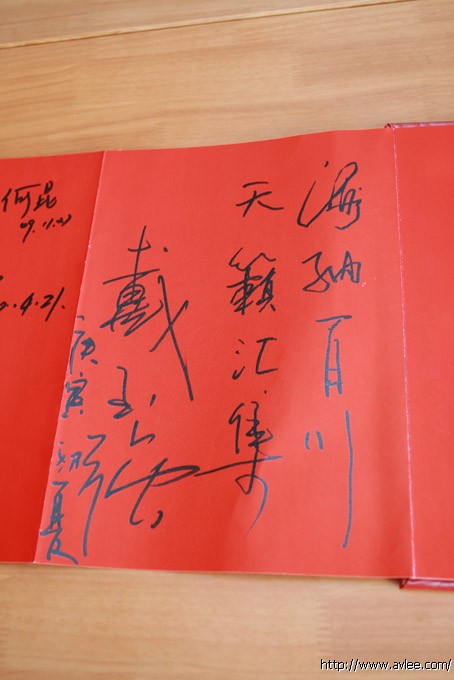 海纳百川
天籟汇集
戴玉强
庚寅初夏
何昆
4.21.
http://www.avlee.com/